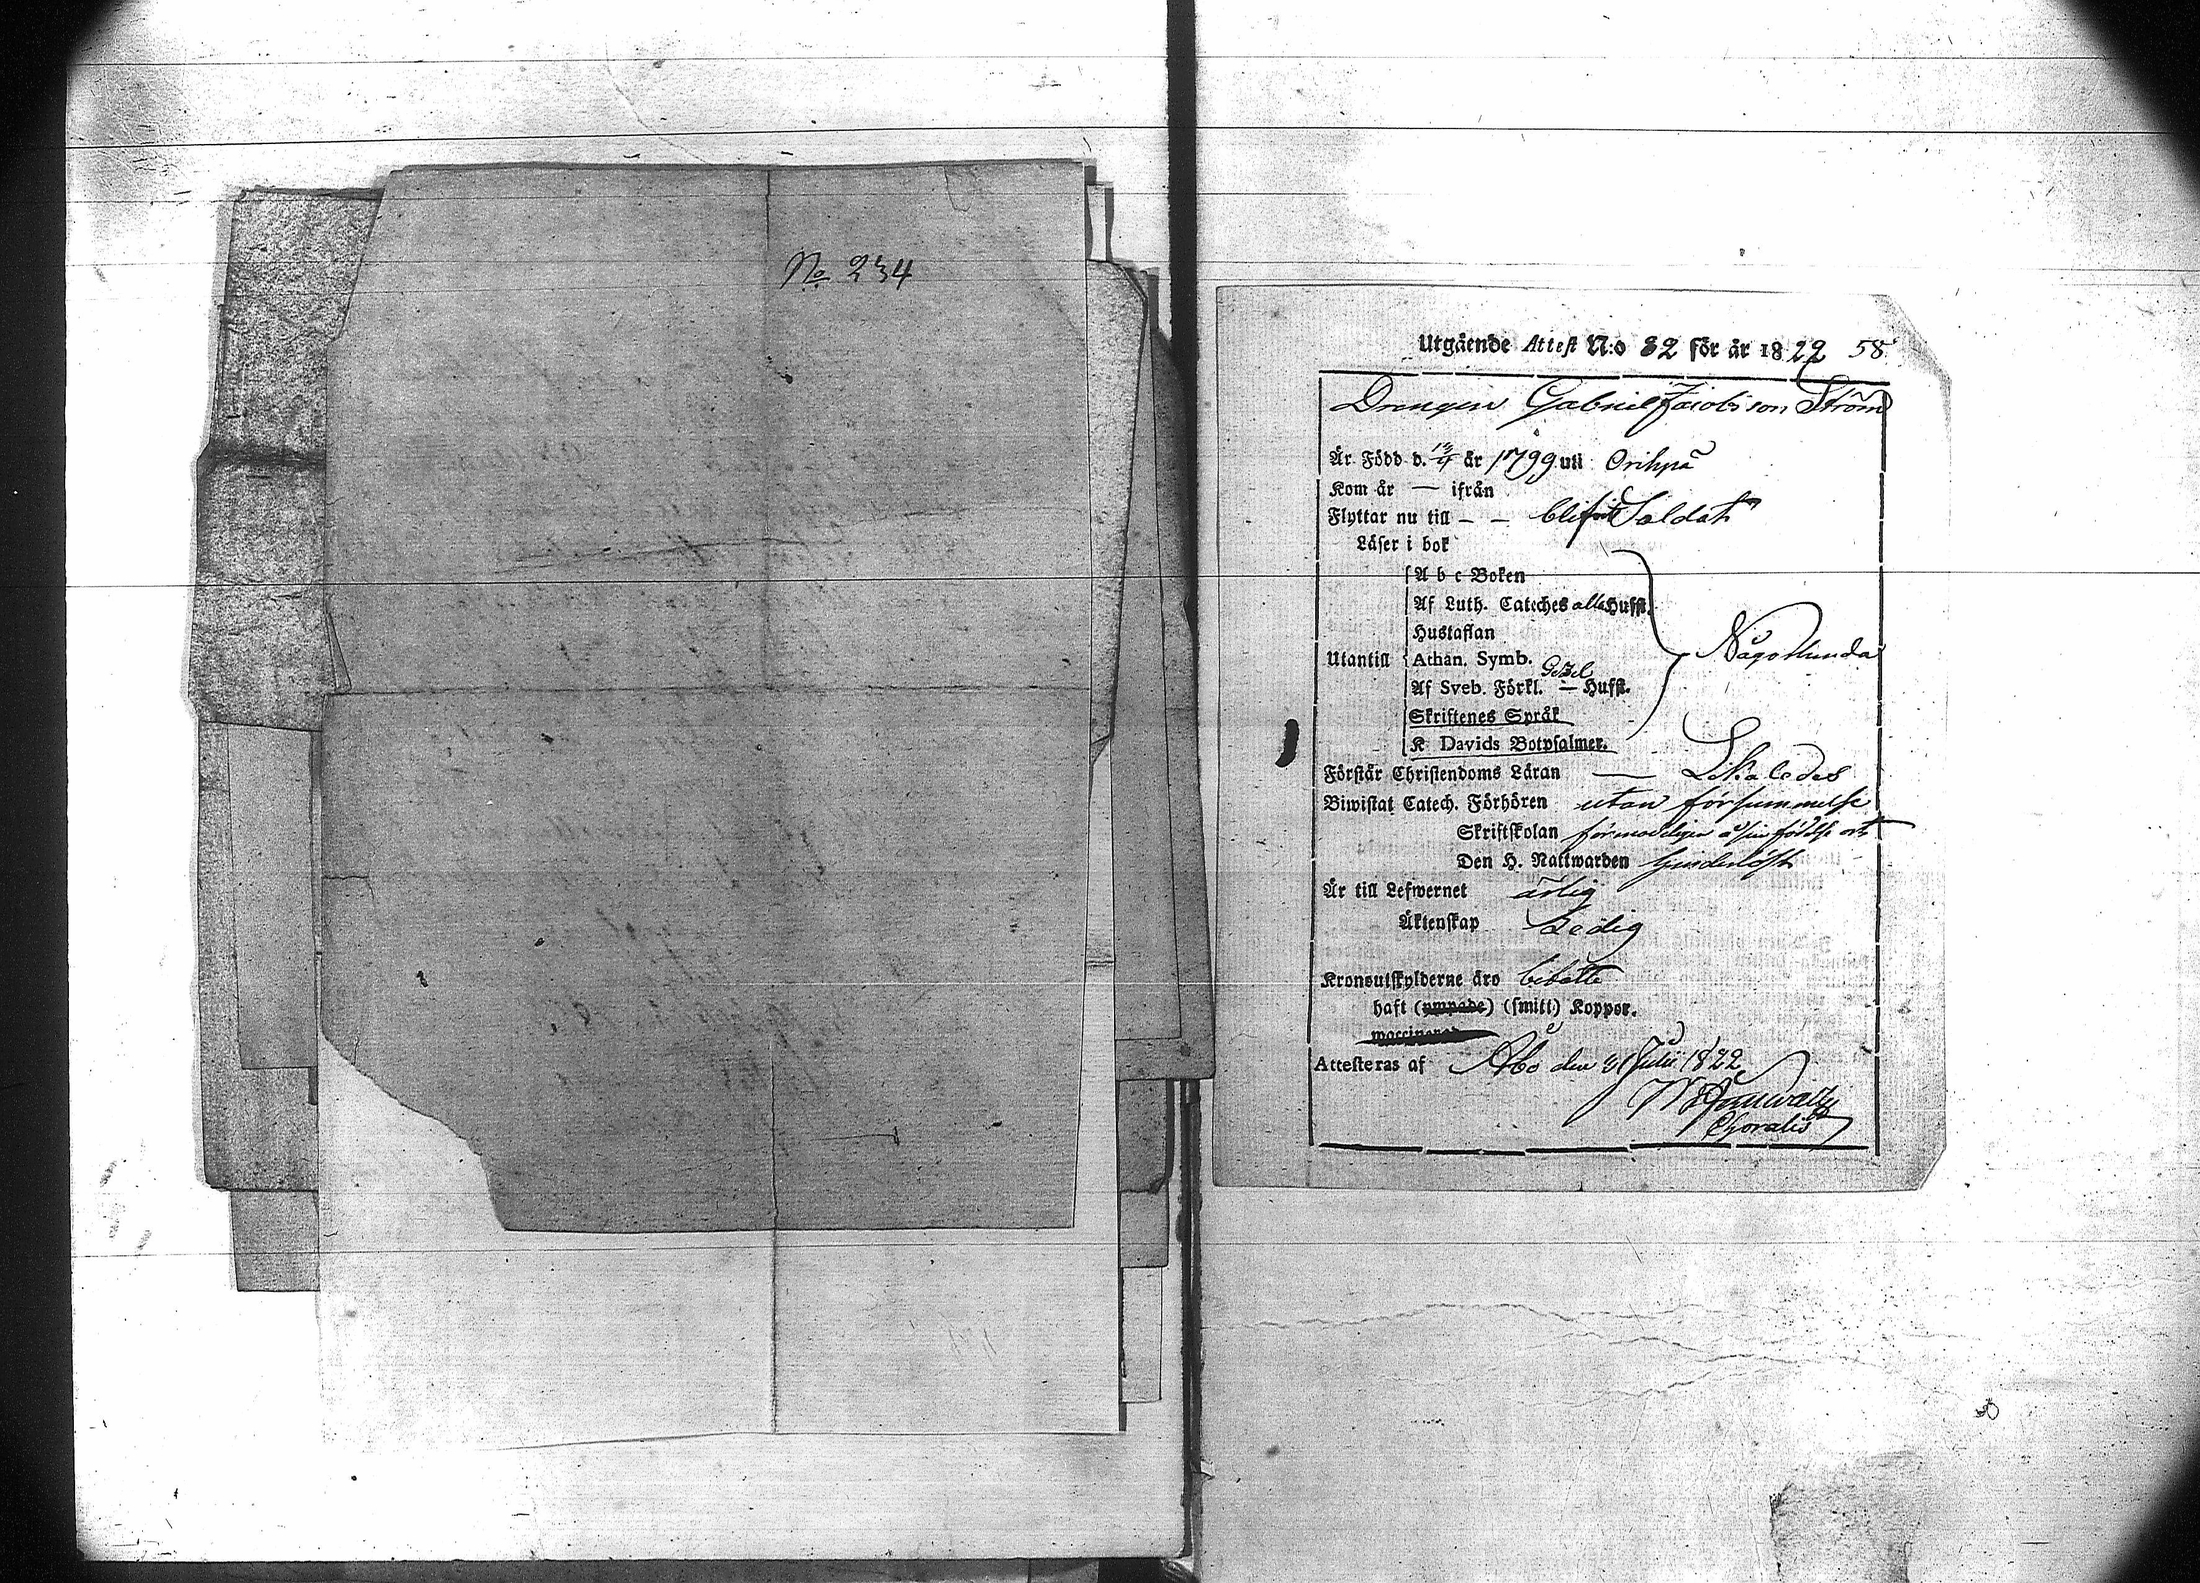 No 234
Utgående Attest N:o 82 för år 1822 58.
Drengen Gabriel Jacobsson Ström
Är Född d. 13/4 år 1799 uti Oripä
Kom år — ifrån
Flyttar nu till – – blifvit Soldat
Läser i bok
A b c Boken
Af Luth. Cateches alla Hufst.
Hustaflan
Utantill Athan. Symb.
Gezel
Af Sveb. Förkl. — Hufst.
Skriftenes Språk
K Davids Botpsalmer.
Någorlunda
Förstår Christendoms Läran — Likaledes
Biwistat Catech. Förhören utan försummelse
Skriftskolan förmodeligen å sin födelse ort
Den H. Nattwarden
Är till Lefwernet ärlig
Äktenskap Ledig
Kronoutskylderne äro betalte
haft (ympade) (smitt) Koppor.
waccinerad
Attesteras af Åbo den 31 Julii 1822